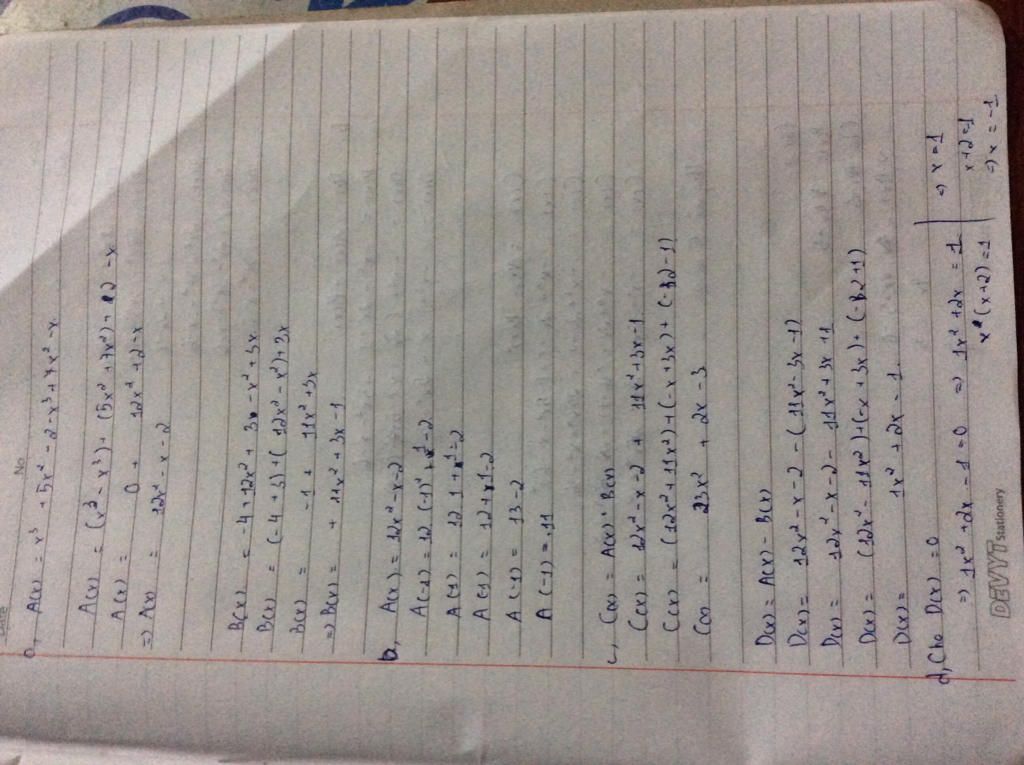 Date
No
a, A(x) = x³ + 5x² - 2 - x³ + 7x² - x
A(x) = (x³ - x³) + (5x² + 7x²) + 2 - x
A(x) = 0 + 12x² + 2 - x
=) A(x) = 12x² - x - 2
B(x) = -4 + 12x² + 3 - x² + 3x
B(x) = (-4 + 3) + (12x² - x²) + 3x
B(x) = -1 + 11x² + 3x
=) B(x) = + 11x² + 3x - 1
b, A(x) = 12x² - x - 2
A(-1) = 12 (-1)² + 1 - 2
A(-1) = 12 1 + 1 - 2
A(-1) = 12 + 1 - 2
A(-1) = 13 - 2
A(-1) = 11
c, C(x) = A(x) + B(x)
C(x) = 12x² - x - 2 + 11x² + 3x - 1
C(x) = (12x² + 11x²) + (-x + 3x) + (-2 - 1)
C(x) = 23x² + 2x - 3
D(x) = A(x) - B(x)
D(x) = 12x² - x - 2 - (11x² - 3x - 1)
D(x) = 12x² - x - 2 - 11x² + 3x + 1
D(x) = (12x² - 11x²) + (-x + 3x) + (-2 + 1)
D(x) = 1x² + 2x - 1
d, Cho D(x) = 0
=) 1x² + 2x - 1 = 0 =) 1x² + 2x = 1 =) x = 1
x² (x + 2) = 1 x + 2 = 1
=) x = -1
DEVYT Stationery